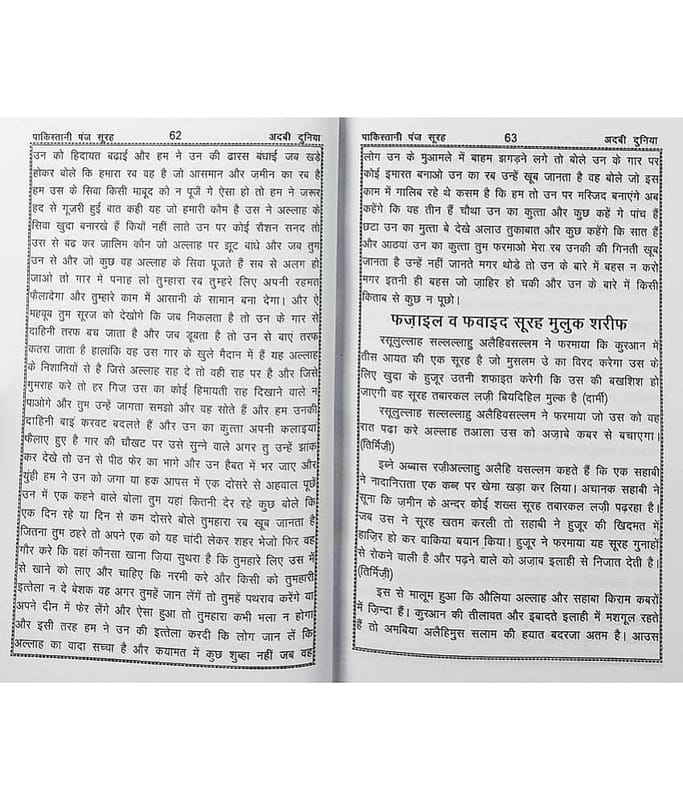 पाकिस्तानी पंज सूरह 62 अदबी दुनिया
उन को हिदायत बढ़ाई और हम ने उन की ढारस बंधाई जब खडे
होकर बोले कि हमारा रब वह है जो आसमान और ज़मीन का रब है
हम उस के सिवा किसी माबूद को न पूजें गे ऐसा हो तो हम ने जरूर
हद से गूजरी हुई बात कही यह जो हमारी कौम है उस ने अल्लाह के
सिवा खुदा बनारखे हैं कियों नहीं लाते उन पर कोई रौशन सनद तो
उस से बढ कर ज़ालिम कौन जो अल्लाह पर झूट बांधे और जब तुम
उन से और जो कुछ वह अल्लाह के सिवा पूजते हैं सब से अलग हो
जाओ तो गार में पनाह लो तुम्हारा रब तुम्हरे लिए अपनी रहमत
फैलादेगा और तुम्हारे काम में आसानी के सामान बना देगा। और ऐ
महबूब तुम सूरज को देखोगे कि जब निकलता है तो उन के गार से
दाहिनी तरफ बच जाता है और जब डूबता है तो उन से बाएं तरफ
कतरा जाता है हालांकि वह उस गार के खुले मैदान में हैं यह अल्लाह
के निशानियों से है जिसे अल्लाह राह दे तो वही राह पर है और जिसे
गुमराह करे तो हर गिज उस का कोई हिमायती राह दिखाने वाले न
पाओगे और तुम उन्हें जागता समझो और वह सोते हैं और हम उनकी
दाहिनी बाइं करवट बदलते हैं और उन का कुत्ता अपनी कलाइया
फैलाए हुए है गार की चौखट पर उसे सुन्ने वाले अगर तु उन्हें झांक
कर देखे तो उन से पीठ फेर का भागे और उन हैबत में भर जाए और
युंही हम ने उन को जगा या हक आपस में एक दोसरे से अहवाल पूछें
उन में एक कहने वाले बोला तुम यहां कितनी देर रहे कुछ बोले कि
एक दिन रहे या दिन से कम दोसरे बोले तुमहारा रब खूब जानता है
जितना तुम ठहरे तो अपने एक को यह चांदी लेकर शहर भेजो फिर वह
गौर करे कि वहां कौनसा खाना ज़िया सुथरा है कि तुमहारे लिए उस में
से खाने को लाए और चाहिए कि नरमी करे और किसी को तुमहारी
इत्तेला न दे बेशक वह अगर तुमहें जान लेंगें तो तुमहें पथराव करेंगे या
अपने दीन में फेर लेंगे और ऐसा हुआ तो तुमहारा कभी भला न होगा
और इसी तरह हम ने उन की इत्तेला करदी कि लोग जान लें कि
अल्लाह का वादा सच्चा है और कयामत में कुछ शुब्हा नहीं जब वह
पाकिस्तानी पंज सूरह 63 अदबी दुनिया
लोग उन के मुआमले में बाहम झगड़ने लगे तो बोले उन के गार पर
कोई इमारत बनाओ उन का रब उन्हें खूब जानता है वह बोले जो इस
काम में गालिब रहे थे कसम है कि हम तो उन पर मस्जिद बनाएंगे अब
कहेंगे कि वह तीन हैं चौथा उन का कुत्ता और कुछ कहें गे पांच हैं
छटा उन का मुत्ता बे देखे अलाउ तुकाबात और कुछ कहेंगे कि सात हैं
और आठवां उन का कुत्ता तुम फरमाओ मेरा रब उनकी की गिनती खूब
जानता है उन्हें नहीं जानते मगर थोडे तो उन के बारे में बहस न करो
मगर इतनी ही बहस जो ज़ाहिर हो चकी और उन के बारे में किसी
किताब से कुछ न पूछो।
फज़ाइल व फवाइद सूरह मुलुक शरीफ
रसूलुल्लाह सल्लल्लाहु अलैहिवसल्लम ने फरमाया कि कुरआन में
तीस आयत की एक सूरह है जो मुसलम उ का विरद करेगा उस के
लिए खुदा के हुजूर उतनी शफाइत करेगी कि उस की बखशिश हो
जाएगी वह सूरह तबारकल लज़ी बियदिहिल मुल्क है (दार्मी)
रसूलुल्लाह सल्लल्लाहु अलैहिवसल्लम ने फरमाया जो उस को वह
रात पढ़ा करे अल्लाह तआला उस को अज़ाबे कबर से बचाएगा।
(तिर्मिज़ी)
इब्ने अब्बास रज़ीअल्लाहु अलैहि वसल्लम कहते हैं कि एक सहाबी
ने नादानिसता एक कब्र पर खेमा खड़ा कर लिया। अचानक सहाबी ने
सूना कि ज़मीन के अन्दर कोई शख्स सूरह तबारकल लज़ी पढ़रहा है।
जब उस ने सूरह खतम करली तो सहाबी ने हुजूर की खिदमत में
हाज़िर हो कर वाकिया बयान किया। हुजूर ने फरमाया यह सूरह गुनाहों
से रोकने वाली है और पढ़ने वाले को अज़ाब इलाही से निजात देती है।
(तिर्मिज़ी)
इस से मालूम हुआ कि औलिया अल्लाह और सहाबा किराम कबरों
में ज़िन्दा हैं। कुरआन की तीलावत और इबादते इलाही में मशगूल रहते
हैं तो अमबिया अलैहिमुस सलाम की हयात बदरजा अतम है। आउस